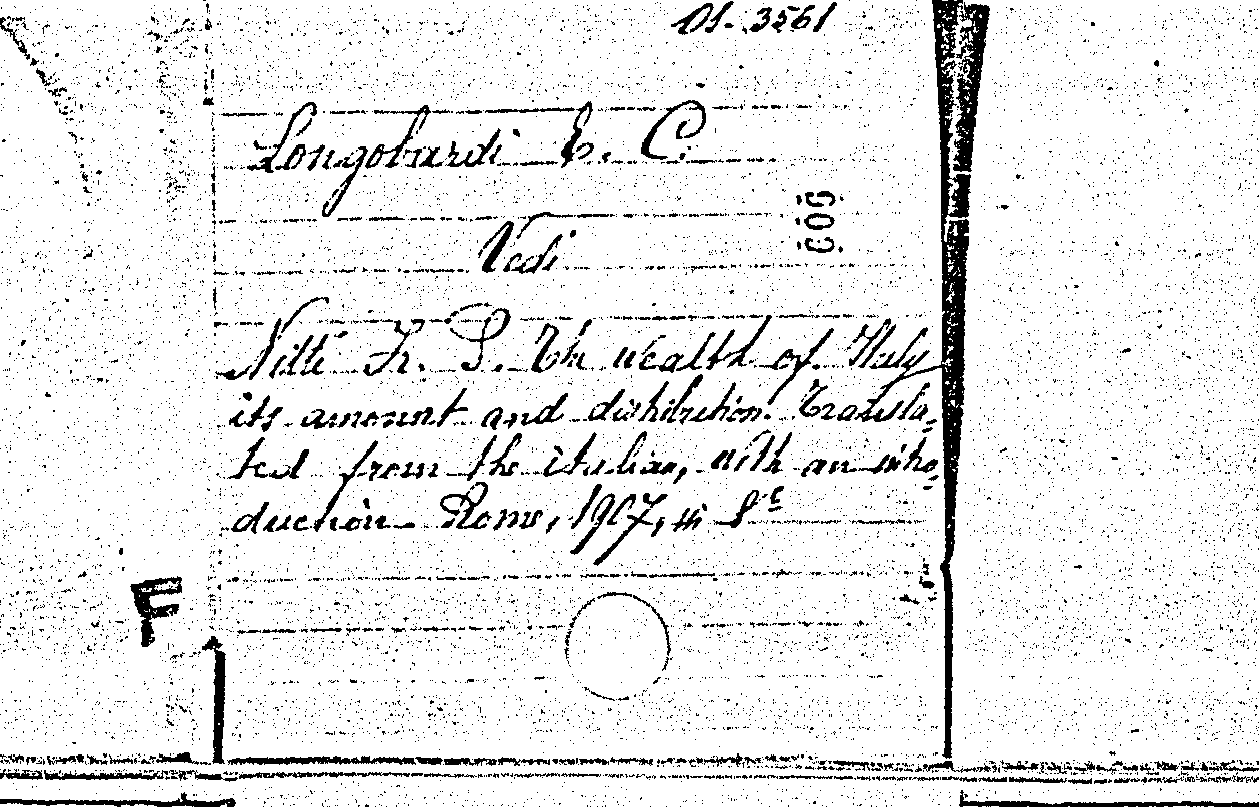 DS. 3561
Longobardi E. C.
Vedi
Nitti Fr. S. The wealth of Italy
its amount and distribution. Transla=
ted from the italian, with an intro=
duction. Rome, 1907, in 8º
F